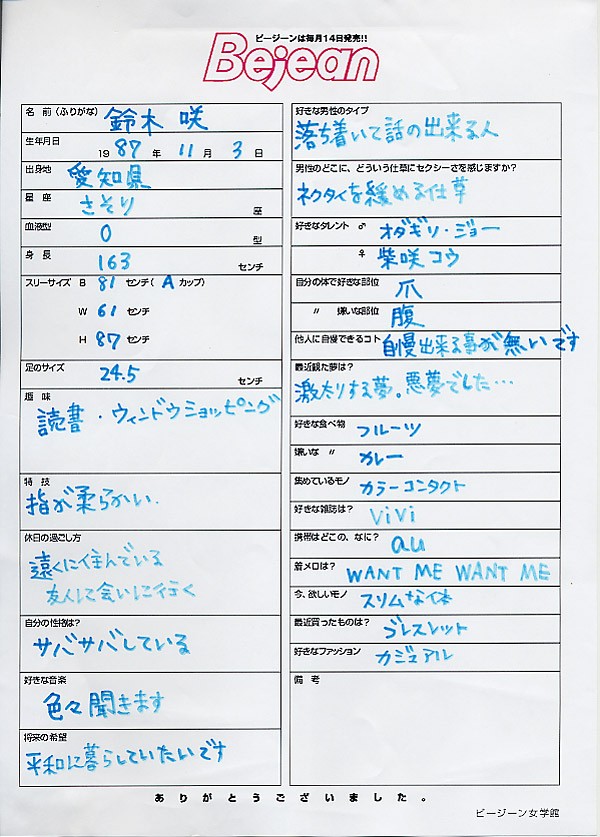 ビージーンは毎月14日発売!!
Bejean
名 前 (ふりがな) 鈴木 咲
生年月日
19 87 年 11 月 3 日
出身地 愛知県
星 座 さそり 座
血液型 O 型
身 長 163 センチ
スリーサイズ B 81 センチ( A カップ)
W 61 センチ
H 87 センチ
足のサイズ 24.5 センチ
趣 味
読書・ウィンドウショッピング
特 技
指が柔らかい.
休日の過ごし方
遠くに住んでいる
友人に会いに行く
自分の性格は?
サバサバしている
好きな音楽
色々聞きます
将来の希望
平和に暮らしていたいです
好きな男性のタイプ
落ち着いて話の出来る人
男性のどこに、どういう仕草にセクシーさを感じますか?
ネクタイを緩める仕草
好きなタレント ♂ オダギリ・ジョー
♀ 柴咲コウ
自分の体で好きな部位 爪
〃 嫌いな部位 腹
他人に自慢できるコト 自慢出来る事が無いです
最近観た夢は?
激太りする夢。悪夢でした…
好きな食べ物 フルーツ
嫌いな 〃 カレー
集めているモノ カラーコンタクト
好きな雑誌は? ViVi
携帯はどこの、なに? au
着メロは? WANT ME WANT ME
今、欲しいモノ スリムな体
最近買ったものは? ブレスレット
好きなファッション カジュアル
備 考
ありがとうございました。
ビージーン女学館